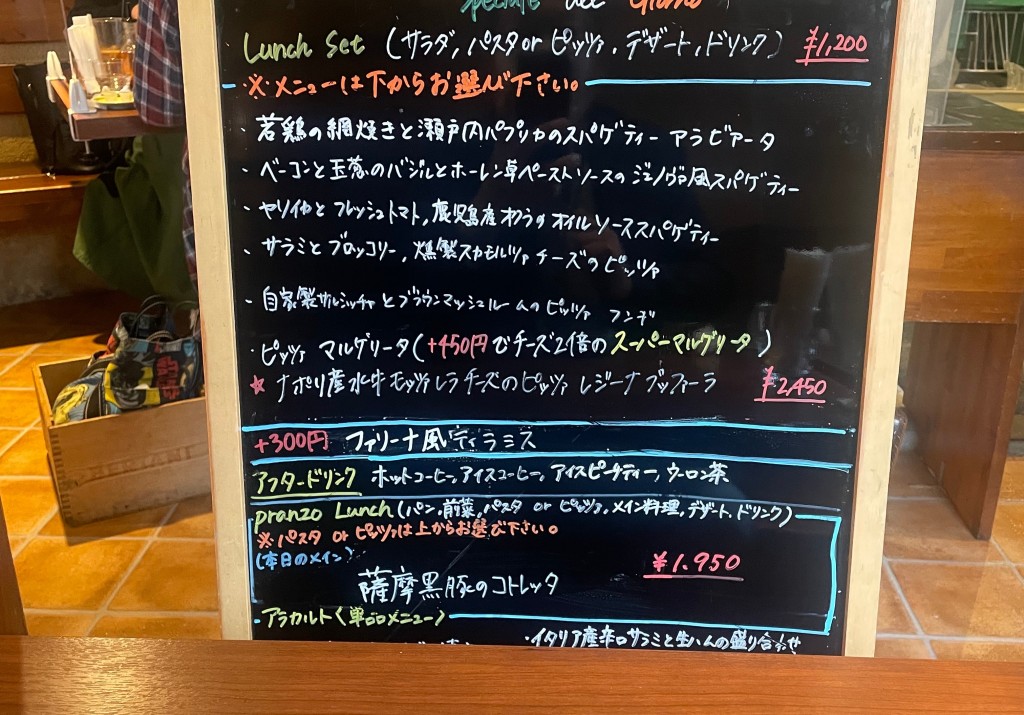 Lunch Set (サラダ, パスタ or ピッツァ, デザート, ドリンク) ¥1,200
※メニューは下からお選び下さい。
・若鶏の網焼きと瀬戸内パプリカのスパゲティー アラビアータ
・ベーコンと玉葱のバジルとホーレン草ペーストソースのジェノヴァ風スパゲティー
・ヤリイカとフレッシュトマト, 鹿児島産オクラのオイルソーススパゲティー
・サラミとブロッコリー, 燻製スカモルツァチーズのピッツァ
・自家製サルシッチャとブラウンマッシュルームのピッツァ フンギ
・ピッツァ マルゲリータ(+450円でチーズ2倍のスーパーマルゲリータ)
★ナポリ産水牛モッツァレラチーズのピッツァ レジーナブッファーラ ¥2,450
+300円 ファリーナ風ティラミス
アフタードリンク ホットコーヒー, アイスコーヒー, アイスピーチティー, ウーロン茶
pranzo Lunch (パン, 前菜, パスタ or ピッツァ, メイン料理, デザート, ドリンク)
※パスタ or ピッツァは上からお選び下さい。
(本日のメイン) ¥1.950
薩摩黒豚のコトレッタ
・アラカルト(単品メニュー)
・イタリア産辛口サラミと生ハムの盛り合わせ